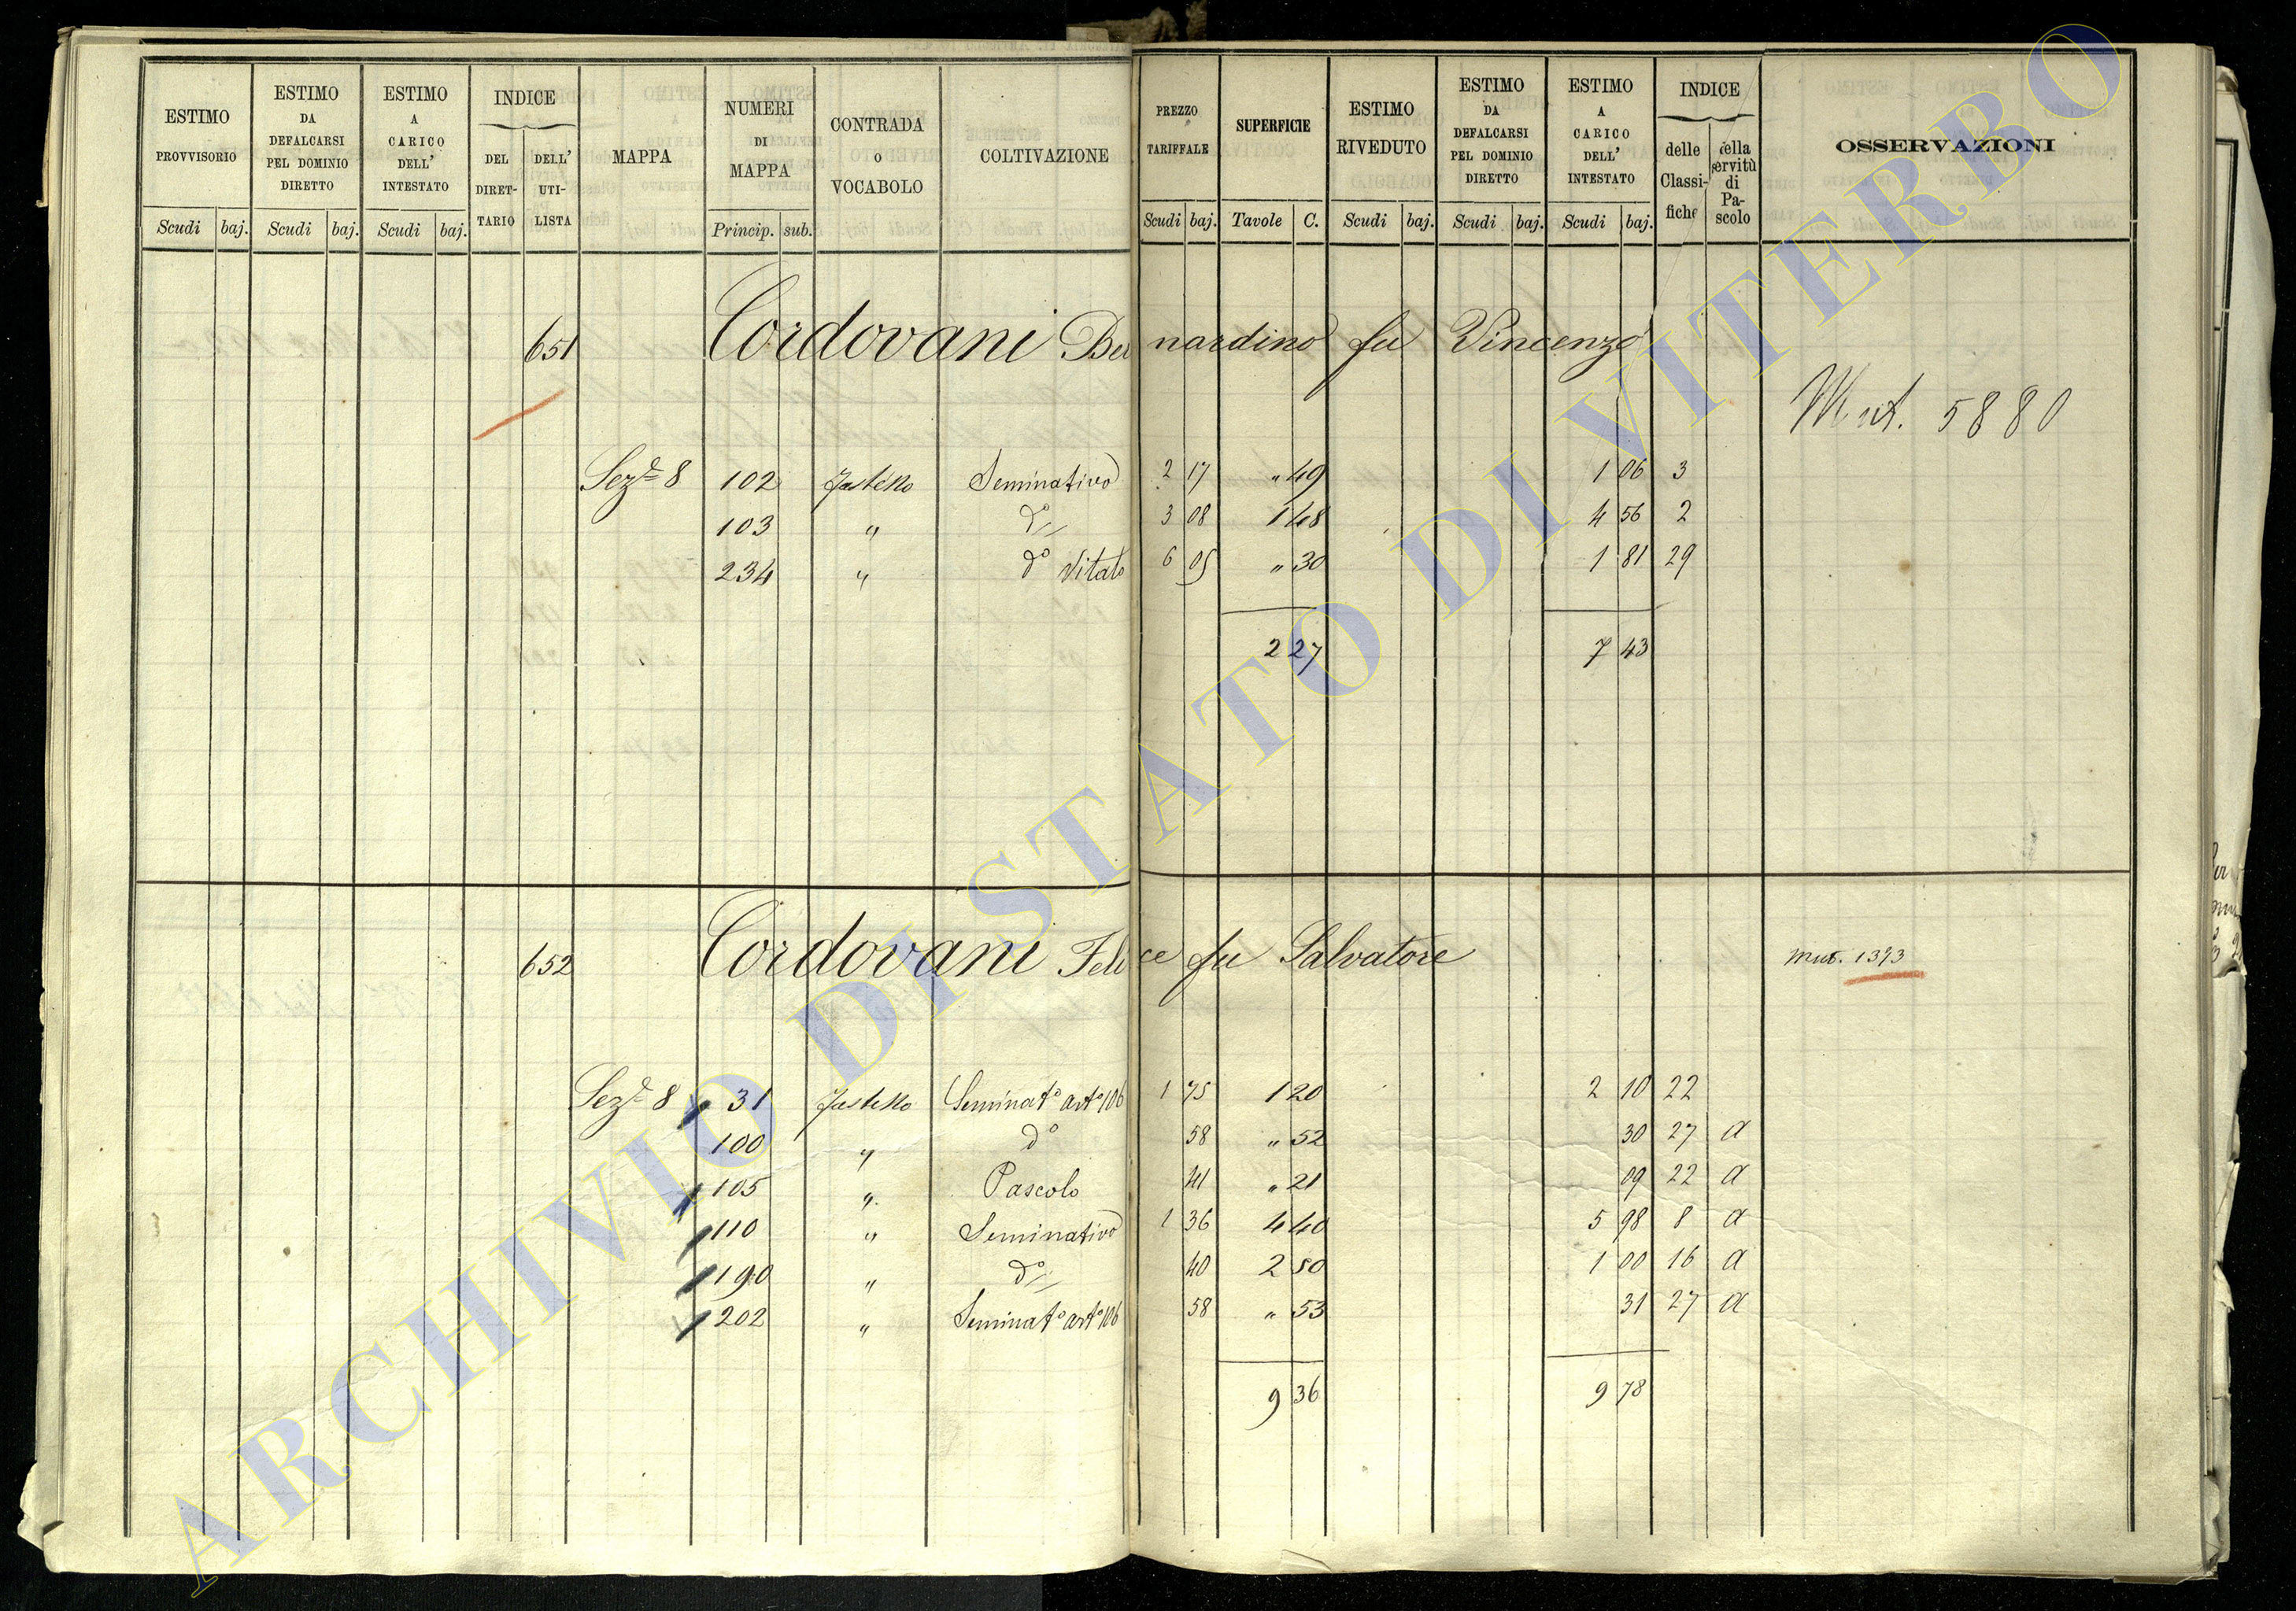 ESTIMO PROVVISORIO Scudi baj.
ESTIMO DA DEFALCARSI PEL DOMINIO DIRETTO Scudi baj.
ESTIMO A CARICO DELL' INTESTATO Scudi baj.
INDICE DEL DIRET- TARIO DELL' UTI- LISTA
MAPPA
NUMERI DI MAPPA Princip. sub.
CONTRADA O VOCABOLO
COLTIVAZIONE
PREZZO TARIFFALE Scudi baj.
SUPERFICIE Tavole C.
ESTIMO RIVEDUTO Scudi baj.
ESTIMO DA DEFALCARSI PEL DOMINIO DIRETTO Scudi baj.
ESTIMO A CARICO DELL' INTESTATO Scudi baj.
INDICE delle Classi- fiche della servitù di Pa- scolo
OSSERVAZIONI
651 Cordovani Bernardino fu Vincenzo
Mut. 5880
Sez.e 8 102 Seminativo 2 17 " 49 1 06 3
103 " do 3 08 1 48 4 56 2
234 " do Vitato 6 05 " 30 1 81 29
2 27 7 43
652 Cordovani Felice fu Salvatore Mut. 1393
Sez.e 8 31 Seminato arto 106 1 75 1 20 2 10 22
100 " do 58 " 52 30 27 a
105 " Pascolo 41 " 21 09 22 a
110 " Seminativo 1 36 4 40 5 98 8 a
190 " do 40 2 50 1 00 16 a
202 " Seminato arto 106 58 " 53 31 27 a
9 36 9 78
ARCHIVIO DI STATO DI VITERBO